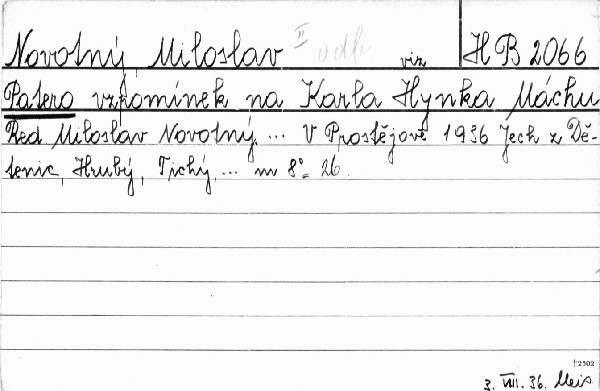 Novotný Miloslav II odd. viz HB 2066
Patero vzpomínek na Karla Hynka Máchu
Red Miloslav Novotný. ... V Prostějově 1936 Jech z Dě-
tenic, Hrubý, Tichý, ... m 8°= 26.
†2502
3. VIII. 36. Meis